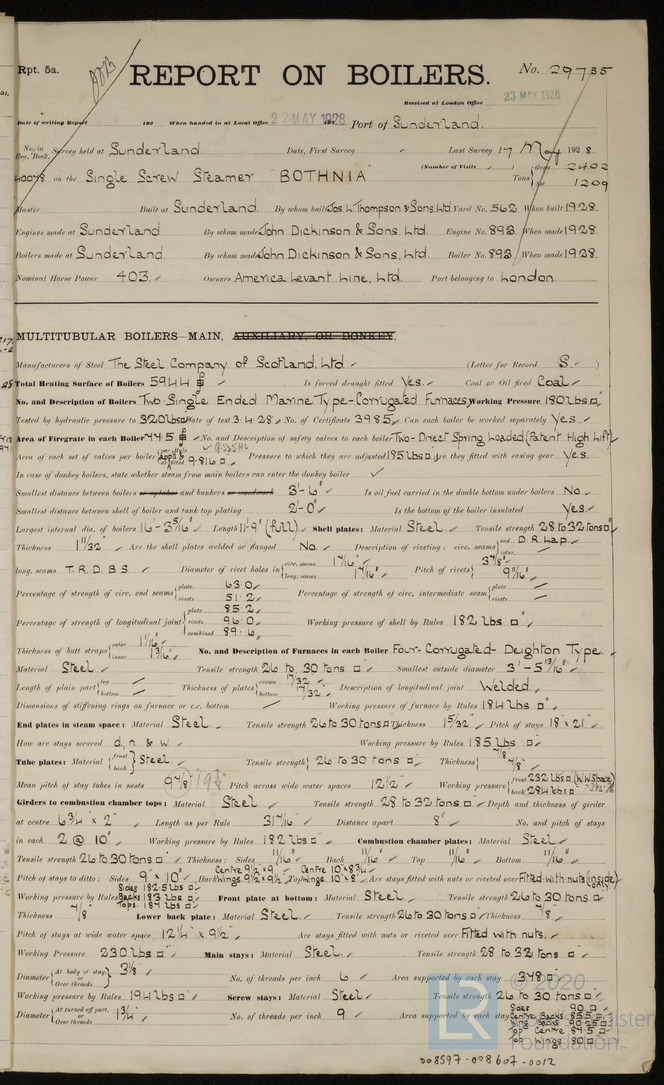 Rpt. 5a.
REPORT ON BOILERS.
No. 29735
Received at London Office 23 MAY 1928
Date of writing Report 192 When handed in at Local Office 22 MAY 1928 Port of Sunderland.
No. in Reg. Book. Survey held at Sunderland Date, First Survey Last Survey 17 May 1928
(Number of Visits
on the Single Screw Steamer "BOTHNIA" Tons { Gross 2402 Net 1209
Master Built at Sunderland. By whom built Jos. L. Thompson & Sons, Ltd Yard No. 562 When built 1928.
Engines made at Sunderland By whom made John Dickinson & Sons, Ltd. Engine No. 893 When made 1928.
Boilers made at Sunderland. By whom made John Dickinson & Sons, Ltd. Boiler No. 893 When made 1928.
Nominal Horse Power 403. Owners America Levant Line, Ltd. Port belonging to London.
MULTITUBULAR BOILERS—MAIN, AUXILIARY, OR DONKEY.
Manufacturers of Steel The Steel Company of Scotland, Ltd (Letter for Record S. )
Total Heating Surface of Boilers 5944 Is forced draught fitted Yes. Coal or Oil fired Coal
No. and Description of Boilers Two Single Ended Marine Type-Corrugated Furnaces, Working Pressure 180 lbs □"
Tested by hydraulic pressure to 320 lbs □" Date of test 3.4.28 No. of Certificate 3985 Can each boiler be worked separately Yes.
Area of Firegrate in each Boiler 44.5 No. and Description of safety valves to each boiler Two-Direct Spring Loaded (Patent High Lift)
Area of each set of valves per boiler { per Rule as fitted 9.816 □" Pressure to which they are adjusted 185 lbs □" Are they fitted with easing gear Yes.
In case of donkey boilers, state whether steam from main boilers can enter the donkey boiler
Smallest distance between boilers or uptakes and bunkers or woodwork 3'-6" Is oil fuel carried in the double bottom under boilers No
Smallest distance between shell of boiler and tank top plating 2'-0" Is the bottom of the boiler insulated Yes.
Largest internal dia. of boilers 16'-3 5/16" Length 11'-9" (full). Shell plates: Material Steel Tensile strength 28 to 32 tons □"
Thickness 1 11/32" Are the shell plates welded or flanged No. Description of riveting: circ. seams { end D.R. Lap. inter.
long. seams T.R.D.B.S. Diameter of rivet holes in { circ. seams 1 7/16" long. seams 1 7/16" Pitch of rivets { 3 7/8" 9 11/16"
Percentage of strength of circ. end seams { plate 63.0 rivets 51.2 Percentage of strength of circ. intermediate seam { plate rivets
Percentage of strength of longitudinal joint { plate 85.2 rivets 96.0 combined 89.6 Working pressure of shell by Rules 182 lbs □"
Thickness of butt straps { outer 1 1/16" inner 1 3/16" No. and Description of Furnaces in each Boiler Four-Corrugated-Deighton Type.
Material Steel Tensile strength 26 to 30 tons □" Smallest outside diameter 3'-5 13/16"
Length of plain part { top bottom Thickness of plates { crown 17/32" bottom 17/32" Description of longitudinal joint Welded.
Dimensions of stiffening rings on furnace or c.c. bottom Working pressure of furnace by Rules 184 lbs □"
End plates in steam space: Material Steel. Tensile strength 26 to 30 tons □" Thickness 1 5/32" Pitch of stays 18" x 21"
How are stays secured d, n & w. Working pressure by Rules 185 lbs □"
Tube plates: Material { front back } Steel. Tensile strength { 26 to 30 tons □" Thickness { 7/8" 7/8"
Mean pitch of stay tubes in nests 9 7/8" Pitch across wide water spaces 12 1/2" Working pressure { front 232 lbs □" (W.W. Space) back 284 lbs □"
Girders to combustion chamber tops: Material Steel Tensile strength 28 to 32 tons □" Depth and thickness of girder
at centre 6 3/4" x 2" Length as per Rule 31 7/16" Distance apart 8" No. and pitch of stays
in each 2 @ 10" Working pressure by Rules 182 lbs □" Combustion chamber plates: Material Steel
Tensile strength 26 to 30 tons □" Thickness: Sides 11/16" Back 11/16" Top 11/16" Bottom 11/16"
Pitch of stays to ditto: Sides 9" x 10" Back Centre 9 1/2 x 9 Wings. 9 1/2 x 9 1/2 Top Centre 10" x 8 3/4 Wings. 10" x 8" Are stays fitted with nuts or riveted over Fitted with nuts (inside only.)
Working pressure by Rules Sides 182.5 lbs □" Backs 183 lbs □" Tops. 187 lbs □" Front plate at bottom: Material Steel. Tensile strength 26 to 30 tons □"
Thickness 7/8" Lower back plate: Material Steel. Tensile strength 26 to 30 tons □" Thickness 7/8"
Pitch of stays at wide water space 12 1/4" x 9 1/2" Are stays fitted with nuts or riveted over Fitted with nuts.
Working Pressure 230 lbs □" Main stays: Material Steel. Tensile strength 28 to 32 tons □"
Diameter { At body of stay or Over threads } 3 1/8" No. of threads per inch 6 Area supported by each stay 348 □"
Working pressure by Rules 194 lbs □" Screw stays: Material Steel Tensile strength 26 to 30 tons □"
Diameter { At turned off part. or Over threads } 1 3/4" No. of threads per inch 9 Area supported by each stay Sides 90 □"
Centre Backs 85.5 □"
Wing Backs 90.25 □"
Top Centre 87.5 □"
Top Wings. 80 □"
© 2020
LR
Lloyd's Register
Foundation
008597-008607-0012